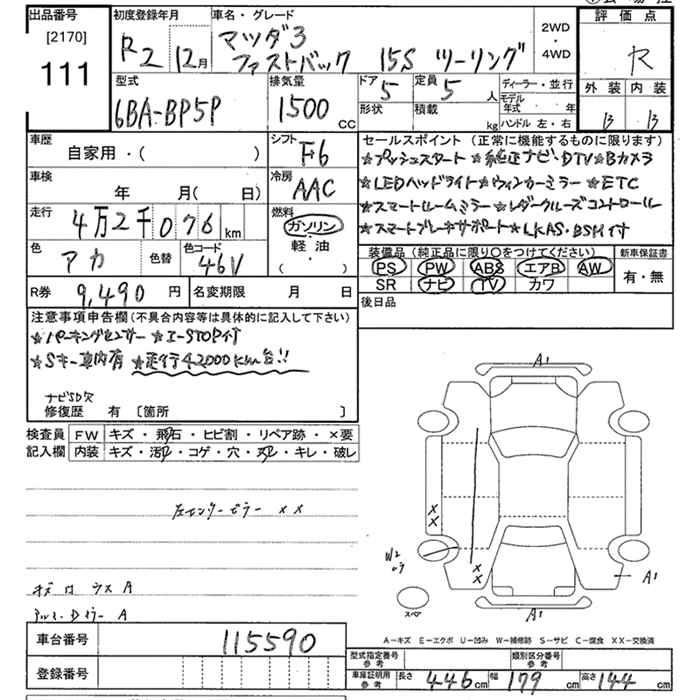 出品番号
[2170]
111
初度登録年月
R2年 12月
車名・グレード
マツダ3
ファストバック 15S ツーリング
2WD
・
4WD
評価点
R
外装 内装
B B
型式
6BA-BP5P
排気量
1500 CC
ドア 5
形状
定員 5 人
積載 kg
ディーラー・並行
モデル年式 ・ 年
ハンドル 左・右
車歴
自家用・( )
シフト
F6
車検
年 月( 日)
冷房
AAC
走行
4万2千076 km
燃料
ガソリン
軽油
( ・ )
色
アカ
色替
色コード
46V
R券 9,490 円
名変期限 月 日
セールスポイント (正常に機能するものに限ります)
★プッシュスタート ★純正ナビ・DTV★Bカメラ
★LEDヘッドライト★ウィンカーミラー ★ETC
★スマートルームミラー ★レダークルーズコントロール
★スマートブレーキサポート ★LKAS・BSM付
装備品 (純正品に限り○をつけてください)
PS PW ABS エアB AW
SR ナビ TV カワ
新車保証書
有・無
後日品
注意事項申告欄(不具合内容等は具体的に記入して下さい)
★パーキングセンサー ★i-STOP付
★Sキー車内有 ★走行42000km台!!
ナビSD欠
修復歴 有 〔箇所 〕
検査員
記入欄
FW キズ・飛石・ヒビ割・リペア跡・×要
内装 キズ・汚レ・コゲ・穴・スレ・キレ・破レ
左センターピラー XX
キズ A
A
A1
XX
W2
XX
A1
スペア
A1
A-キズ E-エクボ U-凹み W-補修跡 S-サビ C-腐食 XX-交換済
車台番号 115590
登録番号
型式指定番号
参考
類別区分番号
参考
車庫証明用
参考
長さ 446cm 幅 179cm 高さ 144cm